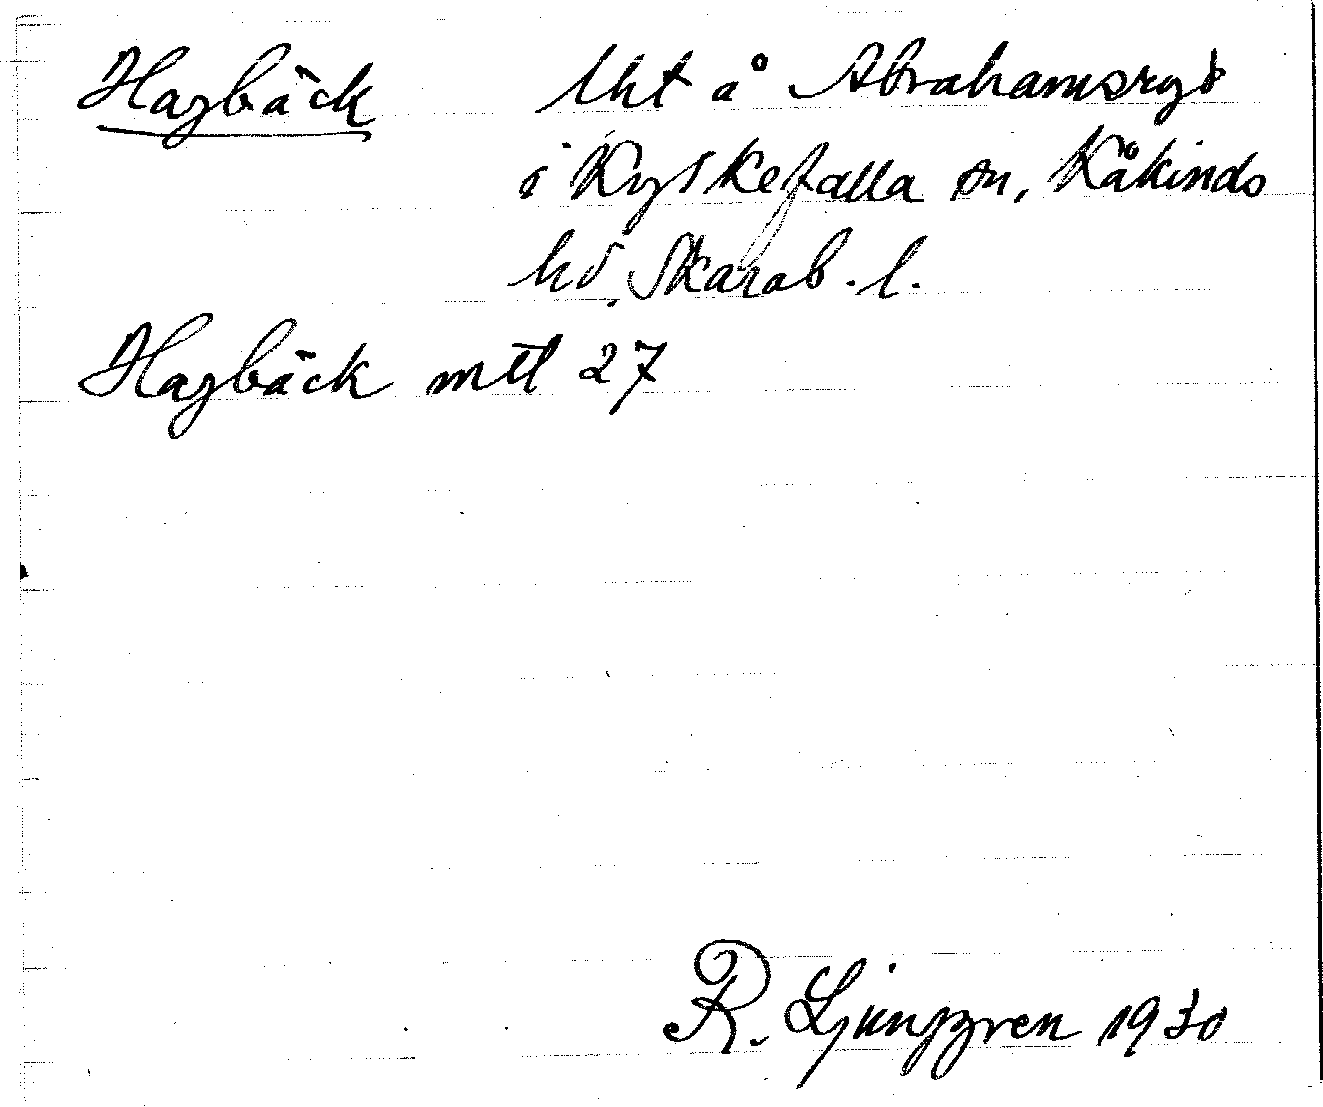 Hagbäck Uht å Abrahamsryd
i Kyrkefalla sn, Kåkinds
hd, Skarab. l.
Hagbäck mtl 27
R. Ljunggren 1930